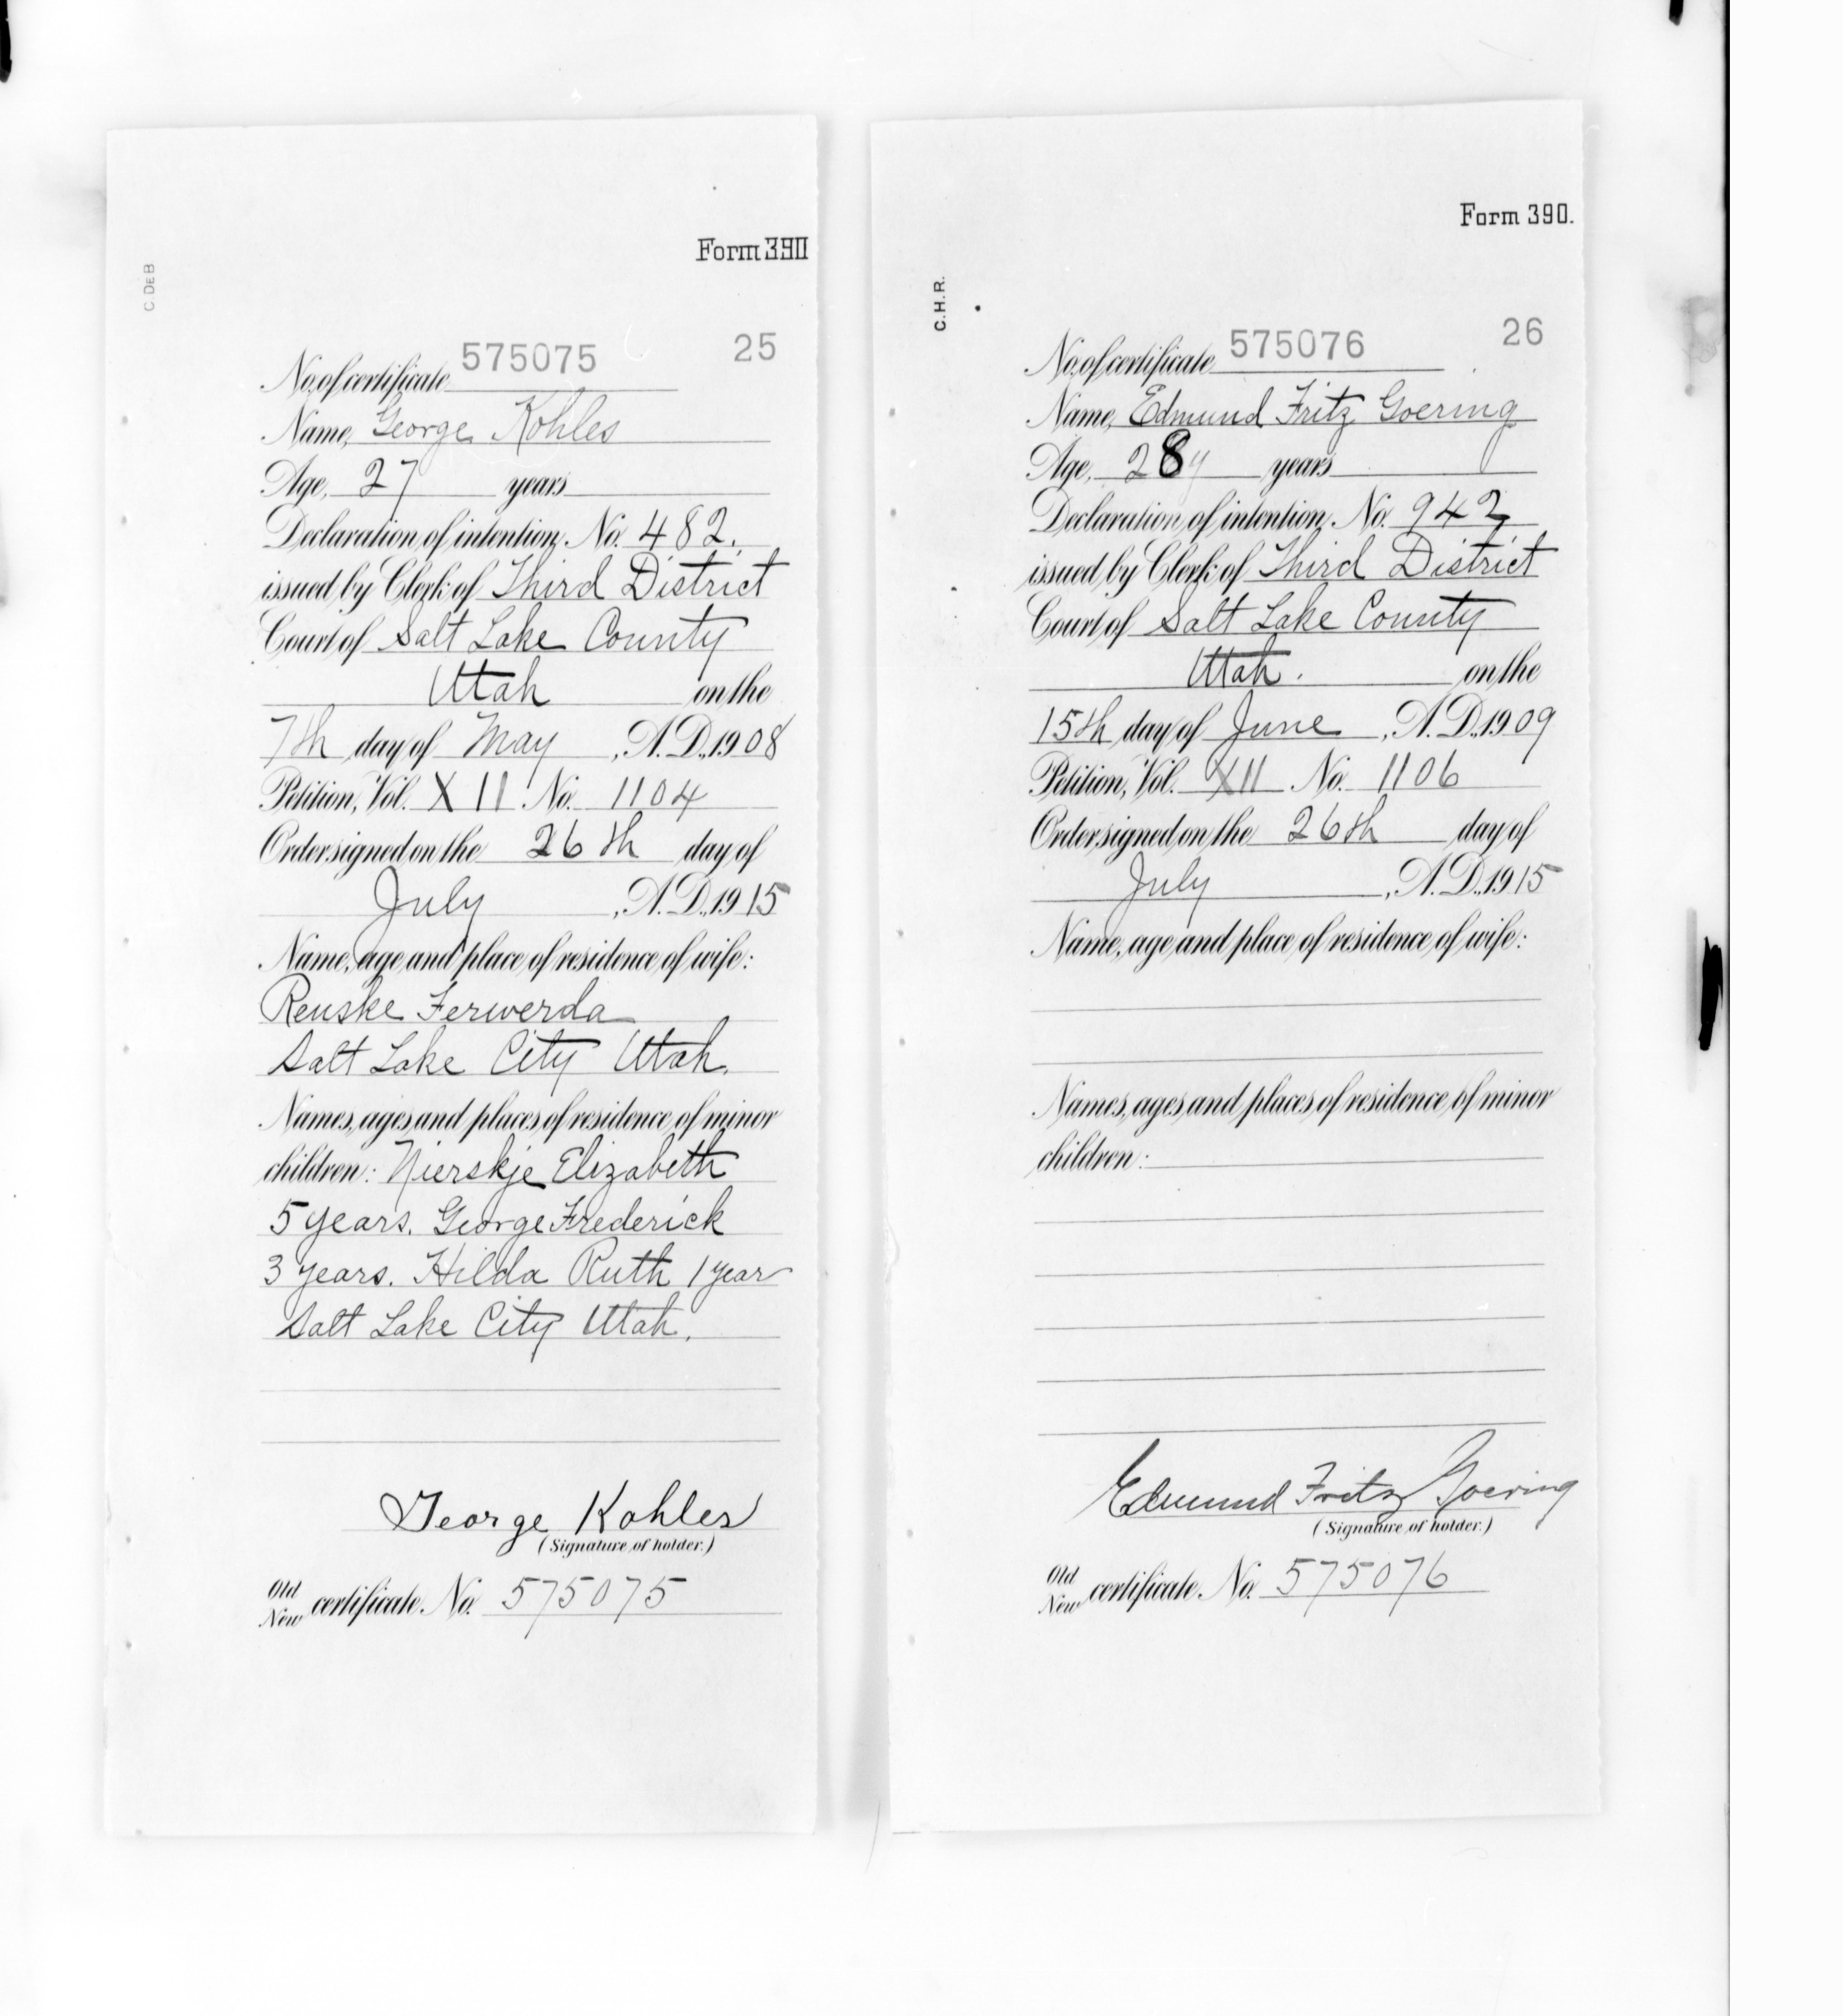 Form 390
C DEB
575075 25
No. of certificate
Name, George Kohles
Age, 27 years
Declaration of intention, No. 482.
issued by Clerk of Third District
Court of Salt Lake County
Utah on the
7th day of May, A.D., 1908
Petition, Vol. XII No. 1104
Order signed on the 26th day of
July, A.D., 1915
Name, age and place of residence of wife:
Renske Ferwerda
Salt Lake City Utah.
Names, ages and places of residence of minor
children: Nierskje Elizabeth
5 years. George Frederick
3 years. Hilda Ruth 1 year
Salt Lake City Utah.
George Kohles
(Signature of holder.)
Old
New certificate No. 575075
Form 390.
C.H.R.
575076 26
No. of certificate
Name, Edmund Fritz Goering
Age, 28 years
Declaration of intention, No. 942
issued by Clerk of Third District
Court of Salt Lake County
Utah. on the
15th day of June, A.D., 1909
Petition, Vol. XII No. 1106
Order signed on the 26th day of
July, A.D., 1915
Name, age and place of residence of wife:
Names, ages and places of residence of minor
children:
Edmund Fritz Goering
(Signature of holder.)
Old
New certificate No. 575076